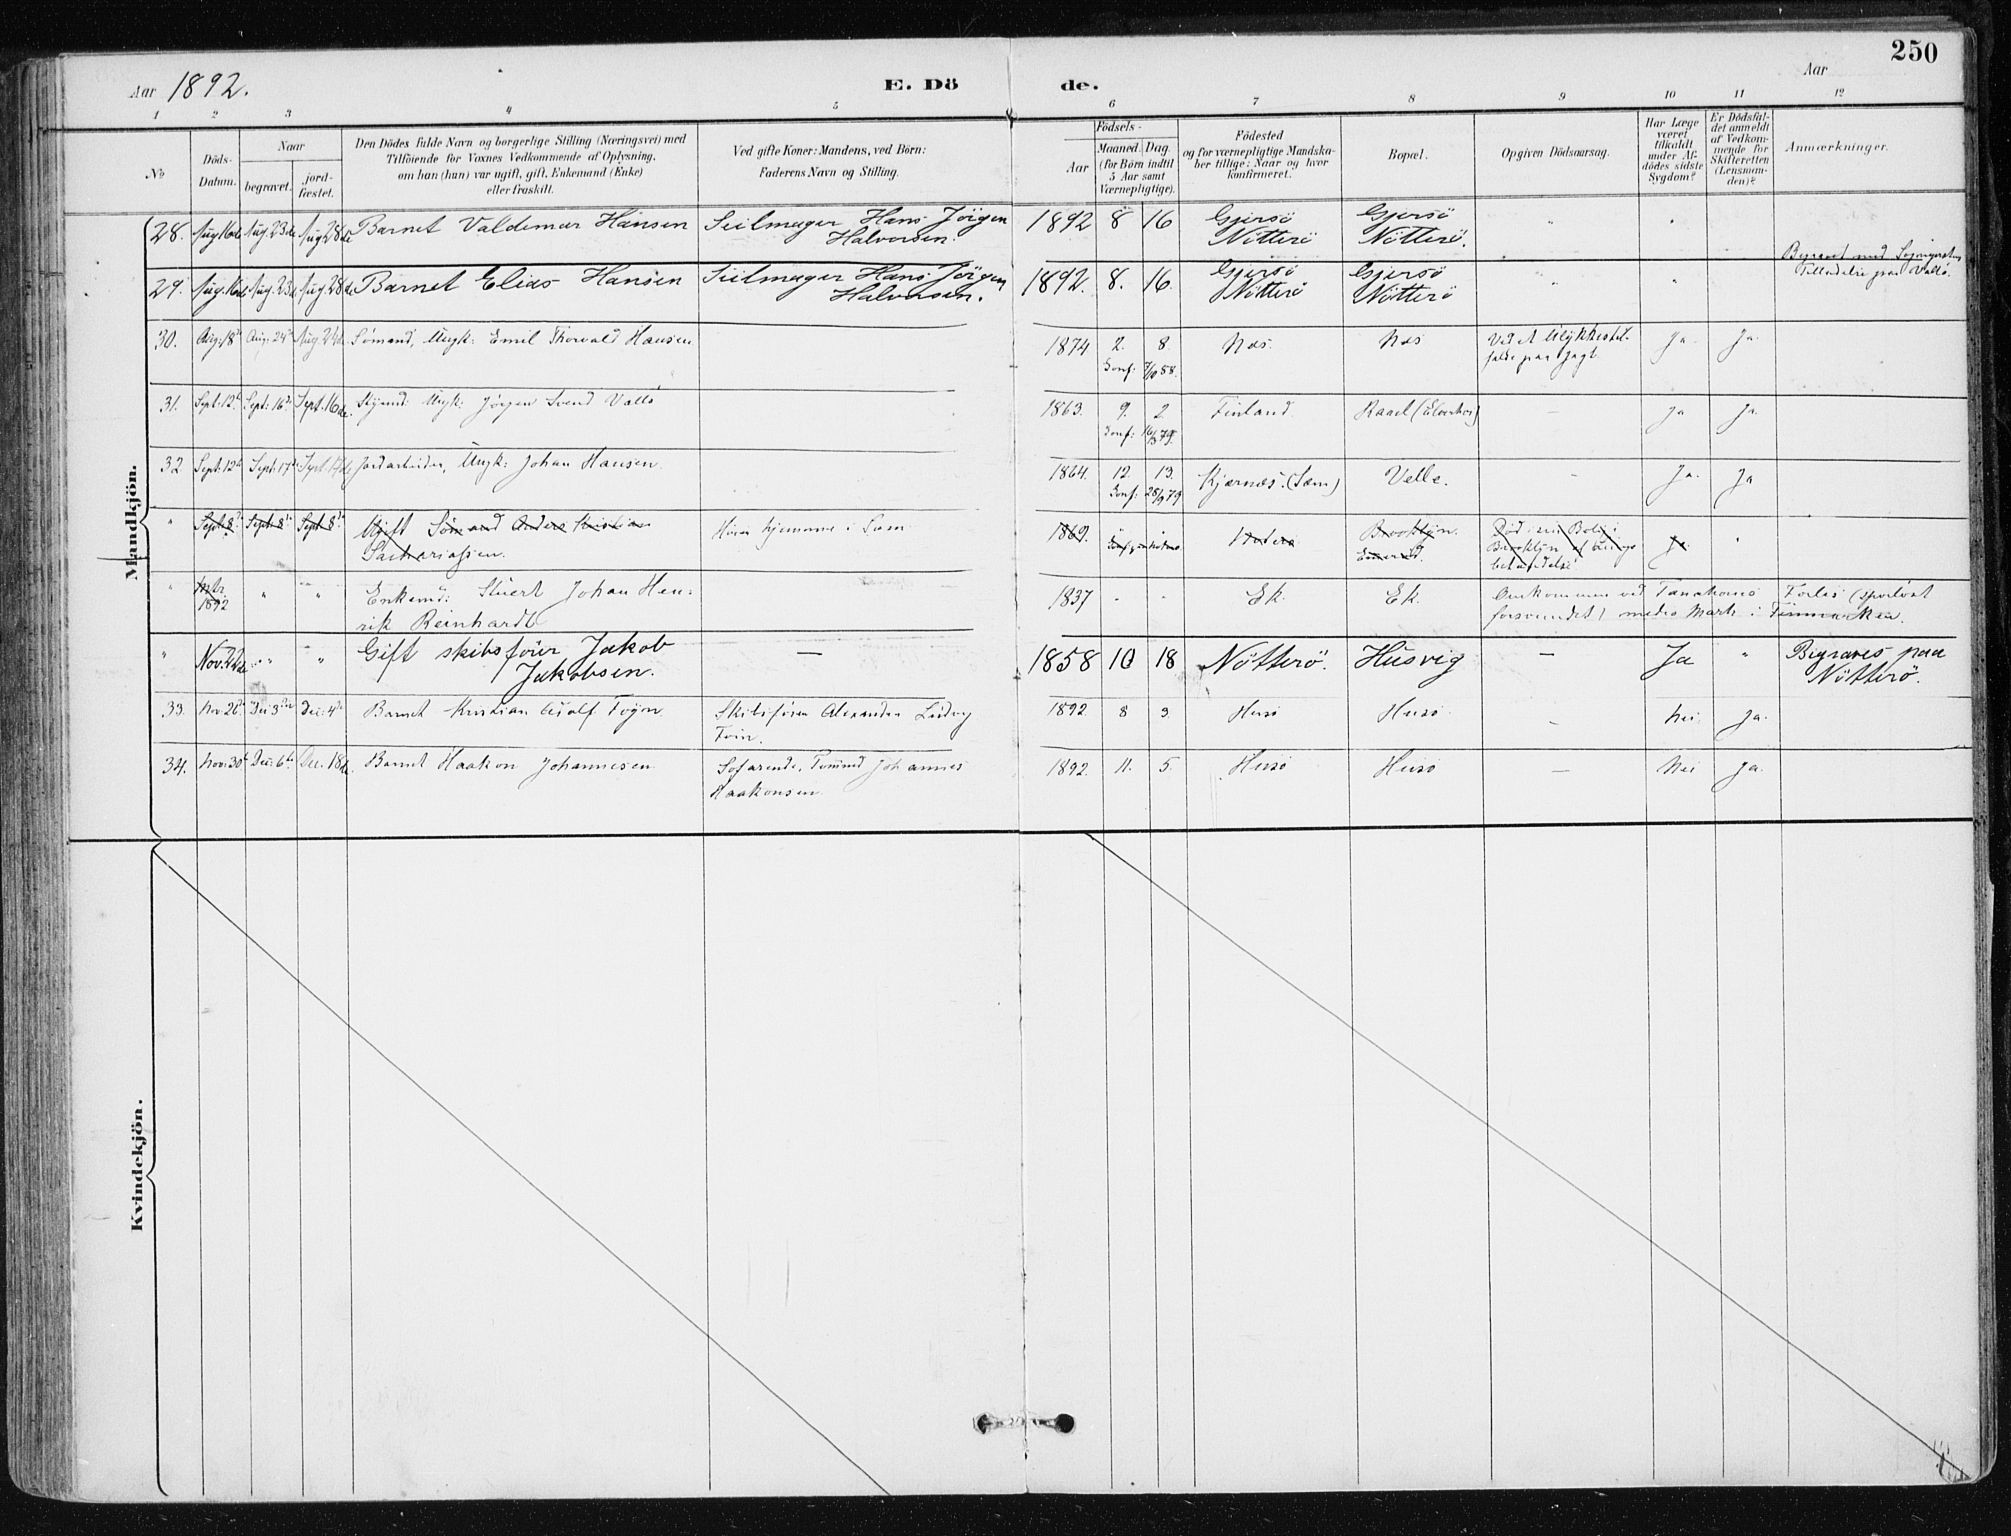 250
Aar 1892.
E. Dö de.
Aar
1 2 3 4 5 6 7 8 9 10 11 12
No
Döds-Datum.
Naar
begravet.
jord-fæstet.
Den Dödes fulde Navn og borgerlige Stilling (Næringsvei) med
Tilföiende for Voxnes Vedkommende af Oplysning,
om han (hun) var ugift, gift, Enkemand (Enke)
eller fraskilt.
Ved gifte Koner: Mandens, ved Börn:
Faderens Navn og Stilling.
Födsels-
Aar
Maaned. Dag.
(for Börn indtil
5 Aar samt
Værnepligtige).
Födested
og for værnepligtige Mandska-
ber tillige: Naar og hvor
konfirmeret.
Bopæl.
Opgiven Dödsaarsag.
Har Læge
været
tilkaldt
under Af-
dödes sidste
Sygdom?
Er Dödsfal-
det anmeldt
af Vedkom-
mende for
Skifteretten
(Lensman-
den)?
Anmærkninger.
Mandkjön.
28. Aug 16de Aug. 23de Aug 28de Barnet Valdemar Hansen Seilmager Hans Jörgen
Halvorsen. 1892 8 16 Gjersö
Nötterö Gjersö
Nötterö. " " "
29. Aug. 16de Aug. 23de Aug. 28de Barnet Elias Hansen Seilmager Hans Jörgen
Halvorsen. 1892. 8. 16. Gjersö
Nötterö Gjersö
Nötterö " " Begravet med
Tilladelse paa Vallö.
30. Aug: 18de Aug: 24de Aug 24de Sømand, Ungk: Emil Thorvald Hansen 1874 2. 8.
Conf: 7/10 88. Næs. Næs Ved et Ulykkestil-
fælde paa Jagt. Ja. Ja.
31. Sept: 12te Sept: 16de Sept. 16de. Styrmd: Ungk: Jørgen Svend Vallø 1863. 9. 2.
Conf: Finland. Rael – ja Ja.
32 Sept: 12te Sept: 17de Sept. 17de Jordarbeider, Ungk: Johan Hansen. 1864. 12. 13.
Conf: 28/9 79 Kjærnæs. (Sem) Velle. – Ja. Ja
" Sept: 8de Sept: 8de Sept 8de Ugift Sömand Anders Kristian
Sachariassen. Hører hjemme i Sem 1869. Brooklyn. Død i sin Bolig i
Brooklyn af Lunge-
betændelse Ja. "
" 1892 " " Enkemd: Stuert Johan Hen-
rik Reinhardt 1837 " " Ek. Ek. Omkommen ved Tanahorns Forlis (sporløst
forsvundet) medio Marts i Finmarken.
" Nov. 22de " " Gift skibsförer Jakob
Jakobsen. — 1858 10 18 Nötterö. Husvig – Ja " Begraves paa
Nötterö.
33. Nov: 26de Dec: 3die Dec: 4de Barnet Kristian Adolf Foyn. Skibsfører Alexander Ludvig
Foin. 1892. 8 3. Husø Husø. – Nei. Ja.
34. Nov: 30te Dec: 6te Dec. 18de. Barnet Haakon Johannesen Søfarende, Tømmd Johannes
Haakonsen. 1892. 11. 5. Husø Husø – Nei Ja.
Kvindekjön.